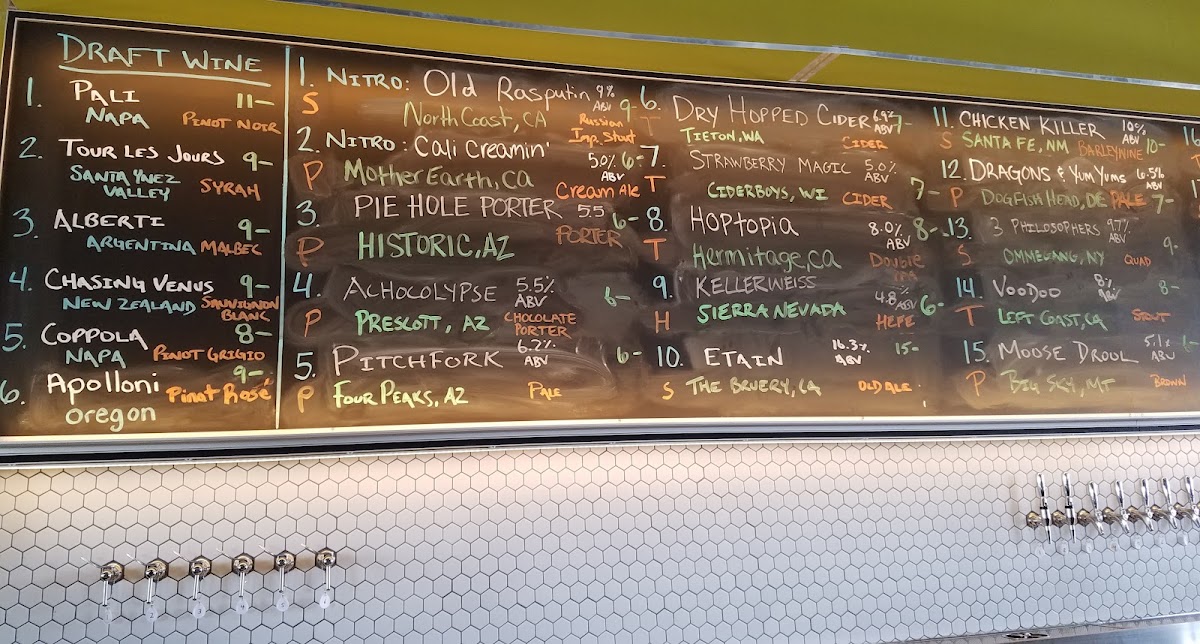 DRAFT WINE
1. PALI 11-
NAPA PINOT NOIR
2. TOUR LES JOURS 9-
SANTA YNEZ VALLEY SYRAH
3. ALBERTI 9-
ARGENTINA MALBEC
4. CHASING VENUS 9-
NEW ZEALAND SAUVIGNON BLANC
5. COPPOLA 8-
NAPA PINOT GRIGIO
6. Apolloni 9-
oregon Pinot Rosé
1. NITRO: Old Rasputin 9% ABV 9-
S North Coast, CA Russian Imp. Stout
2. NITRO: Cali Creamin' 5.0% ABV 6-
P Mother Earth, CA Cream Ale
3. PIE HOLE PORTER 5.5 6-
P HISTORIC, AZ PORTER
4. ACHOCOLYPSE 5.5% ABV 6-
P PRESCOTT, AZ CHOCOLATE PORTER
5. PITCHFORK 6.2% ABV 6-
P FOUR PEAKS, AZ PALE
6. DRY HOPPED CIDER 6.9% ABV 7-
T TIETON, WA CIDER
7. STRAWBERRY MAGIC 5.0% ABV 7-
T CIDERBOYS, WI CIDER
8. HOPTOPIA 8.0% ABV 8-
T Hermitage, CA Double IPA
9. KELLERWEISS 4.8% ABV 6-
H SIERRA NEVADA HEFE
10. ETAIN 16.3% ABV 15-
S THE BRUERY, CA OLD ALE
11. CHICKEN KILLER 10% ABV 10-
S SANTA FE, NM BARLEYWINE
12. DRAGONS & YUM YUMS 6.5% ABV 7-
P DOGFISH HEAD, DE PALE
13. 3 PHILOSOPHERS 9.7% ABV 9-
S OMMEGANG, NY QUAD
14. VOODOO 8% ABV 8-
T LEFT COAST, CA STOUT
15. MOOSE DROOL 5.1% ABV 6-
P BIG SKY, MT BROWN